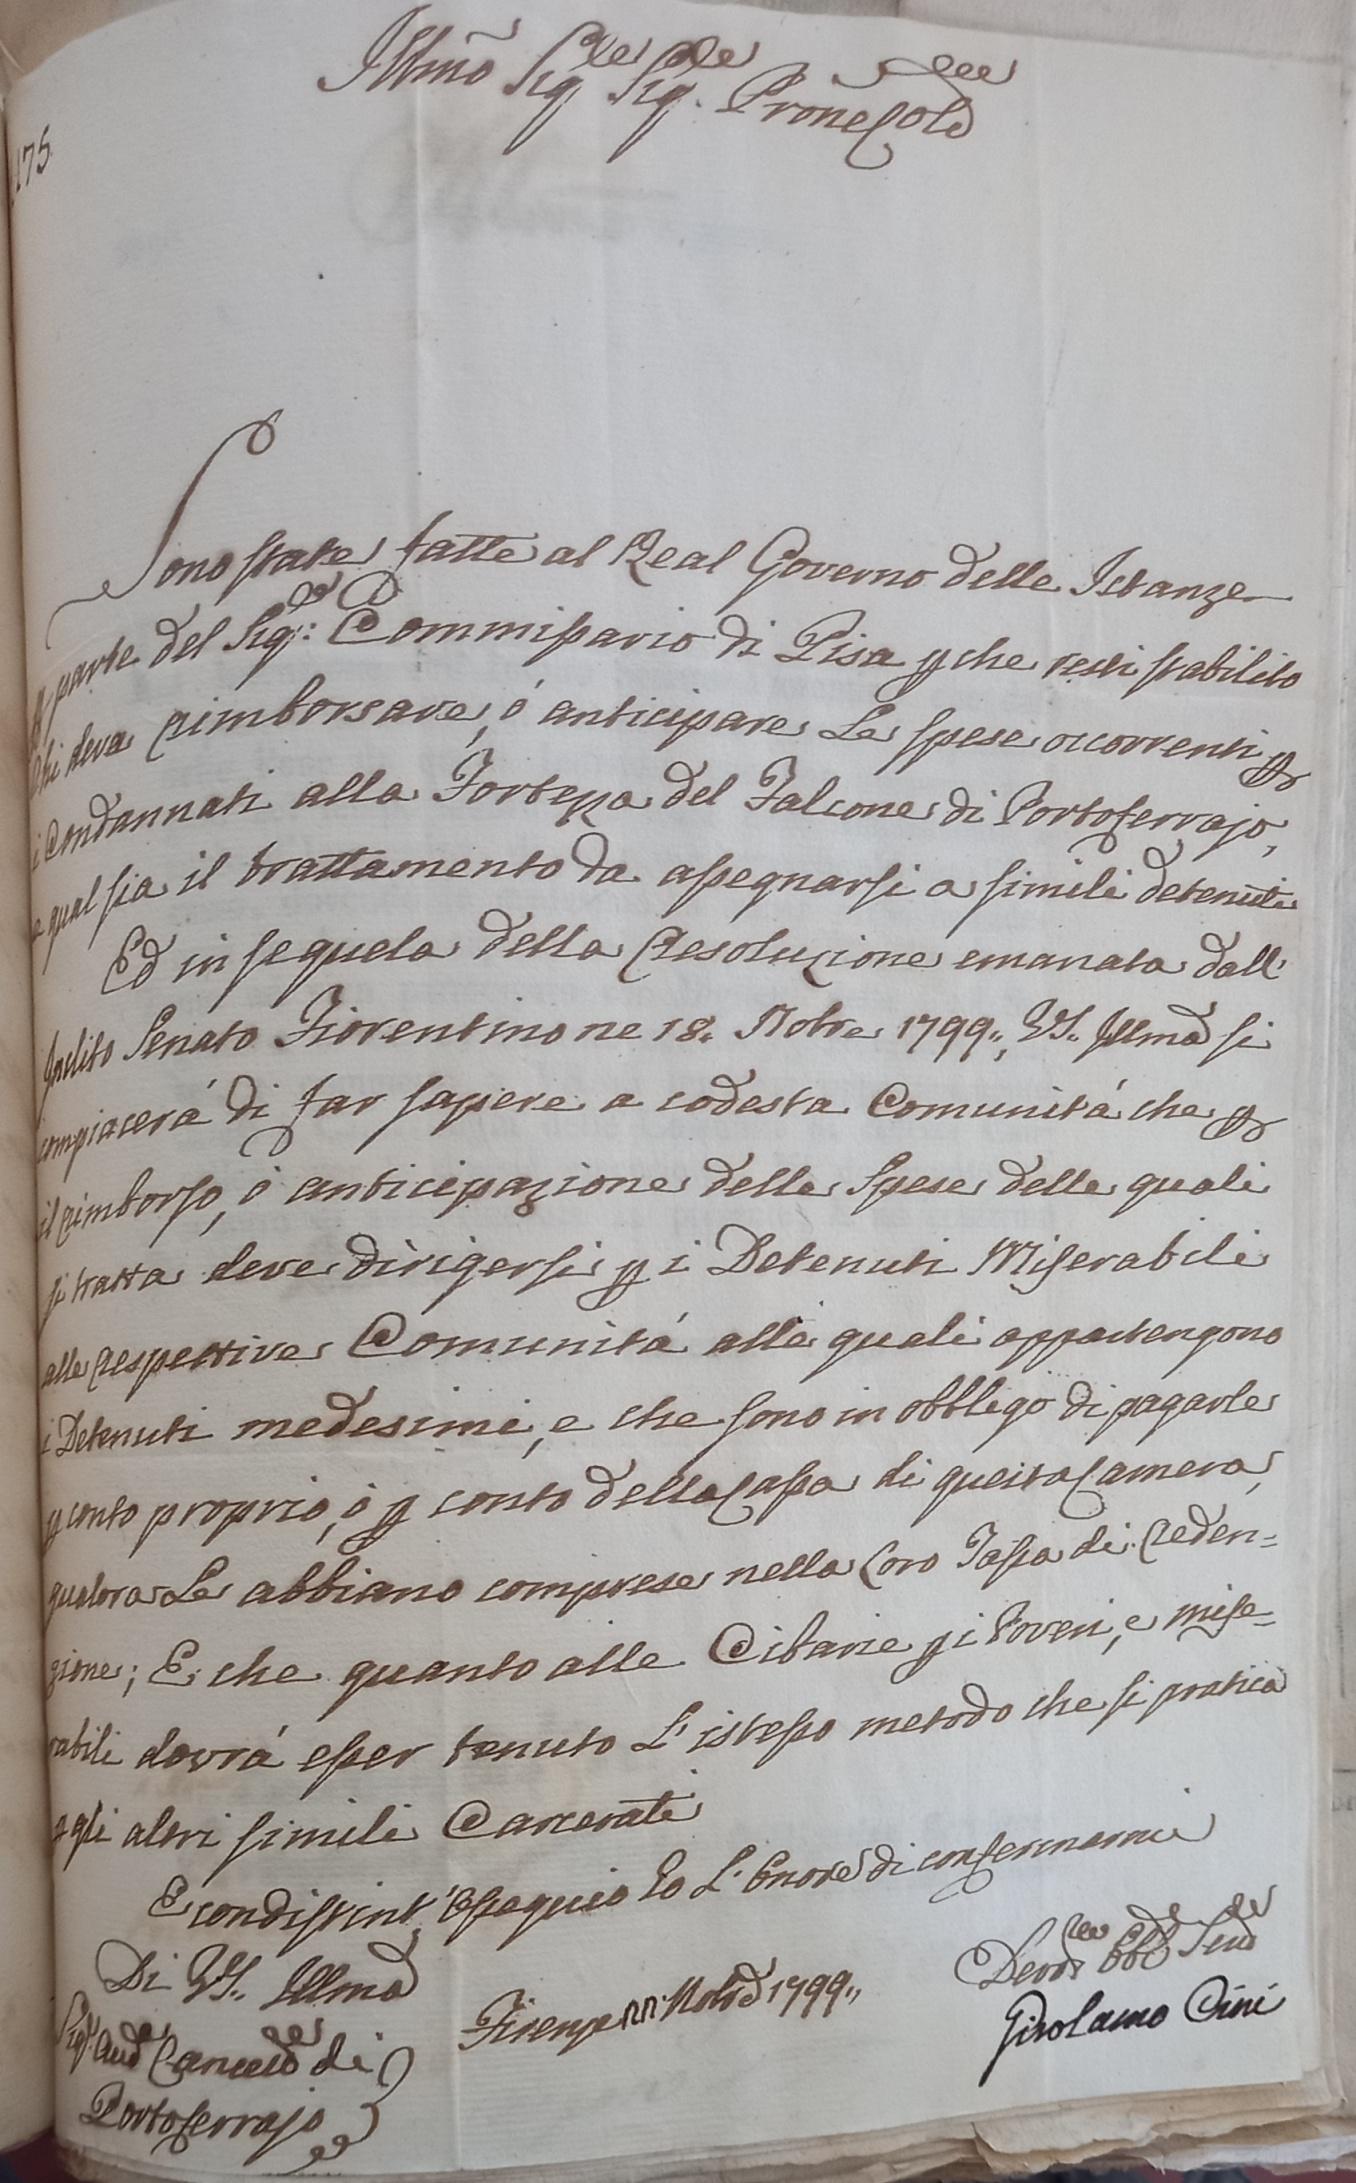 Illmo Sigre Sigre Prone Colo
175
Sono state fatte al Real Governo delle Istanze
parte del Sigr: Commissario di Pisa p che resti stabilito
chi deva rimborsare, ó anticipare le spese occorrenti p
i Condannati alla Fortezza del Falcone di Portoferrajo,
e qual sia il trattamento da assegnarsi a simili detenuti
Ed in sequela della Resoluzione emanata dall'
Inclito Senato Fiorentino ne 18. Nobre 1799., VS. Illma si
compiacerá di far sapere a codesta Comunitá che p
il rimborso, ó anticipazione delle Spese delle quali
si tratta deve dirigersi p i Detenuti Miserabili
alle respettive Comunitá alle quali appartengono
i Detenuti medesimi, e che sono in obbligo di pagarle
p conto proprio, ó p conto della Cassa di questa Camera,
qualora le abbiano comprese nella loro Tassa di Reden=
zione; E che quanto alle Cibarie p i Poveri, e mise=
rabili dovrá esser tenuto l'istesso metodo che si pratica
agli altri simili Carcerati
E condistint'Ossequio ho l'Onore di confermarmi
Di VS. Illma
Firenze 22. Nobre 1799.,
Devmo Obbmo Serve
Girolamo Cini
Sigr Audre Cancelre di
Portoferrajo